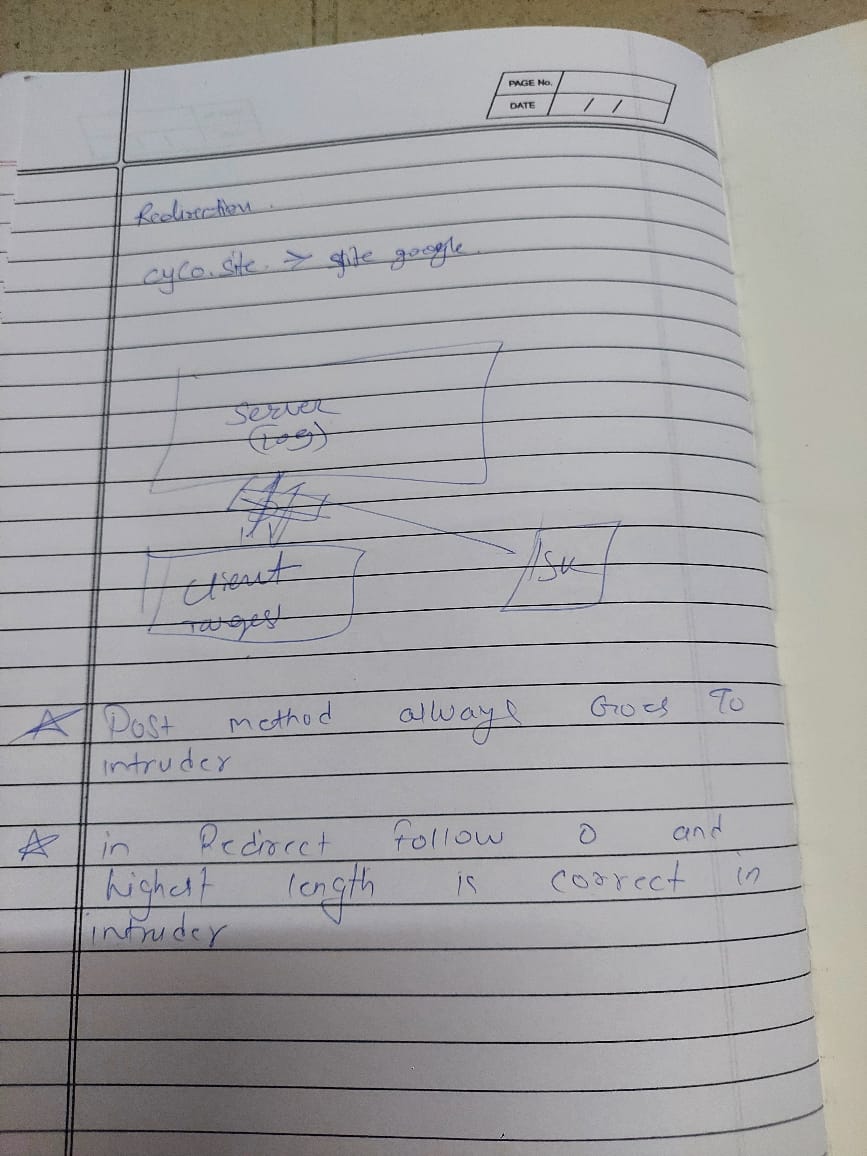 PAGE No.
DATE / /
Redirection.
cyco.site. > site google.
Server
(Log)
Client
Target
Post method always Goes To
intruder
in Redirect follow 0 and
highest length is correct in
intruder